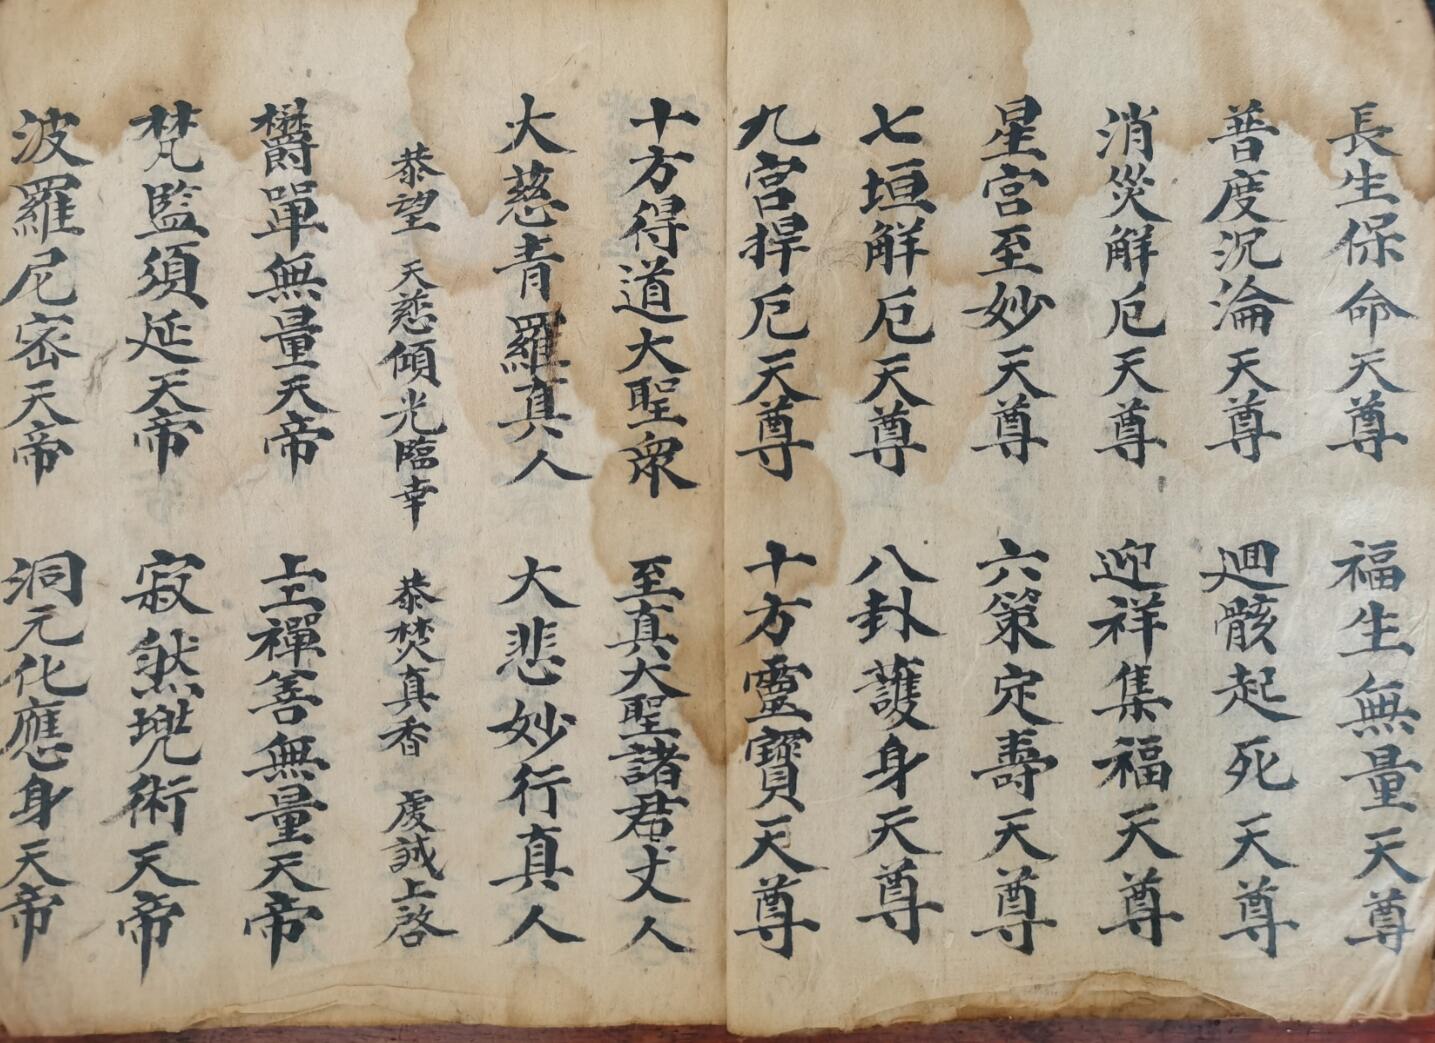 長生保命天尊　福生無量天尊
普度沉淪天尊　迴骸起死天尊
消災解厄天尊　迎祥集福天尊
星宮至妙天尊　六策定壽天尊
七垣解厄天尊　八卦護身天尊
九宮捍厄天尊　十方靈寳天尊
十方得道大聖衆　至真大聖諸君丈人
大慈青羅真人　大悲妙行真人
恭望　天慈傾光臨幸　恭焚真香　虔誠上啓
欎單無量天帝　上禪善無量天帝
梵監須延天帝　寂然兠術天帝
波羅尼密天帝　洞元化應身天帝